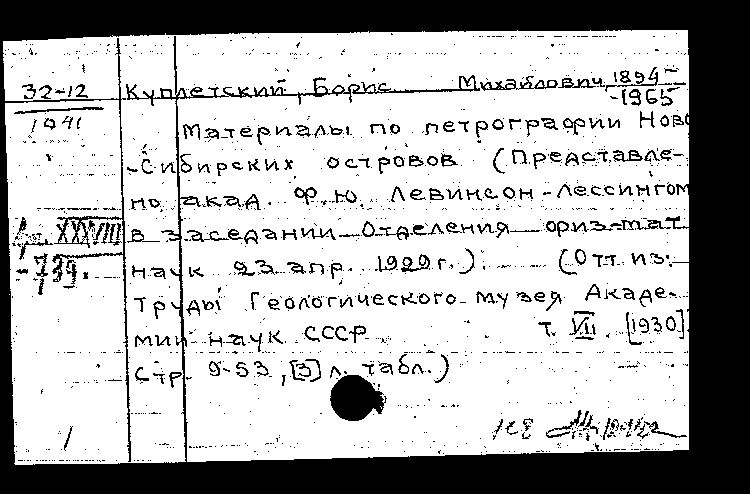 32-12 Куплетский, Борис Михайлович, 1894-
1941 -1965
Материалы по петрографии Ново
-Сибирских островов (Представле-
но акад. Ф.Ю. Левинсон-Лессингом
XXXVIII в заседании Отделения физ-мат
-739. наук 23 апр. 1929 г.). (Отт. из:
Труды Геологического музея Акаде-
мии наук СССР т. VII. [1930].
стр. 9-53, [3] л. табл.)